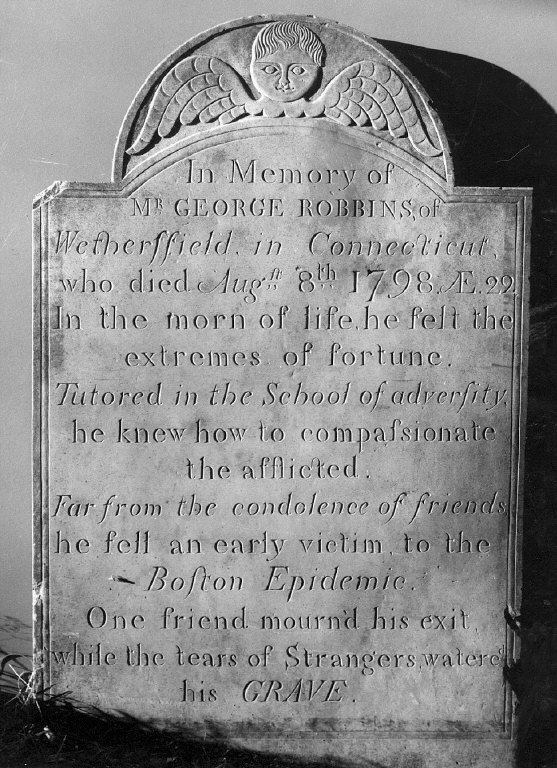 In Memory of
Mr GEORGE ROBBINS, of
Wetherſfield, in Connecticut,
who died Augſt 8th 1798, Æ. 22,
In the morn of life, he felt the
extremes of fortune.
Tutored in the School of adverſity,
he knew how to compaſsionate
the afflicted.
Far from the condolence of friends
he fell an early victim, to the
Boſton Epidemic.
One friend mourn'd his exit,
while the tears of Strangers, water'd
his GRAVE.